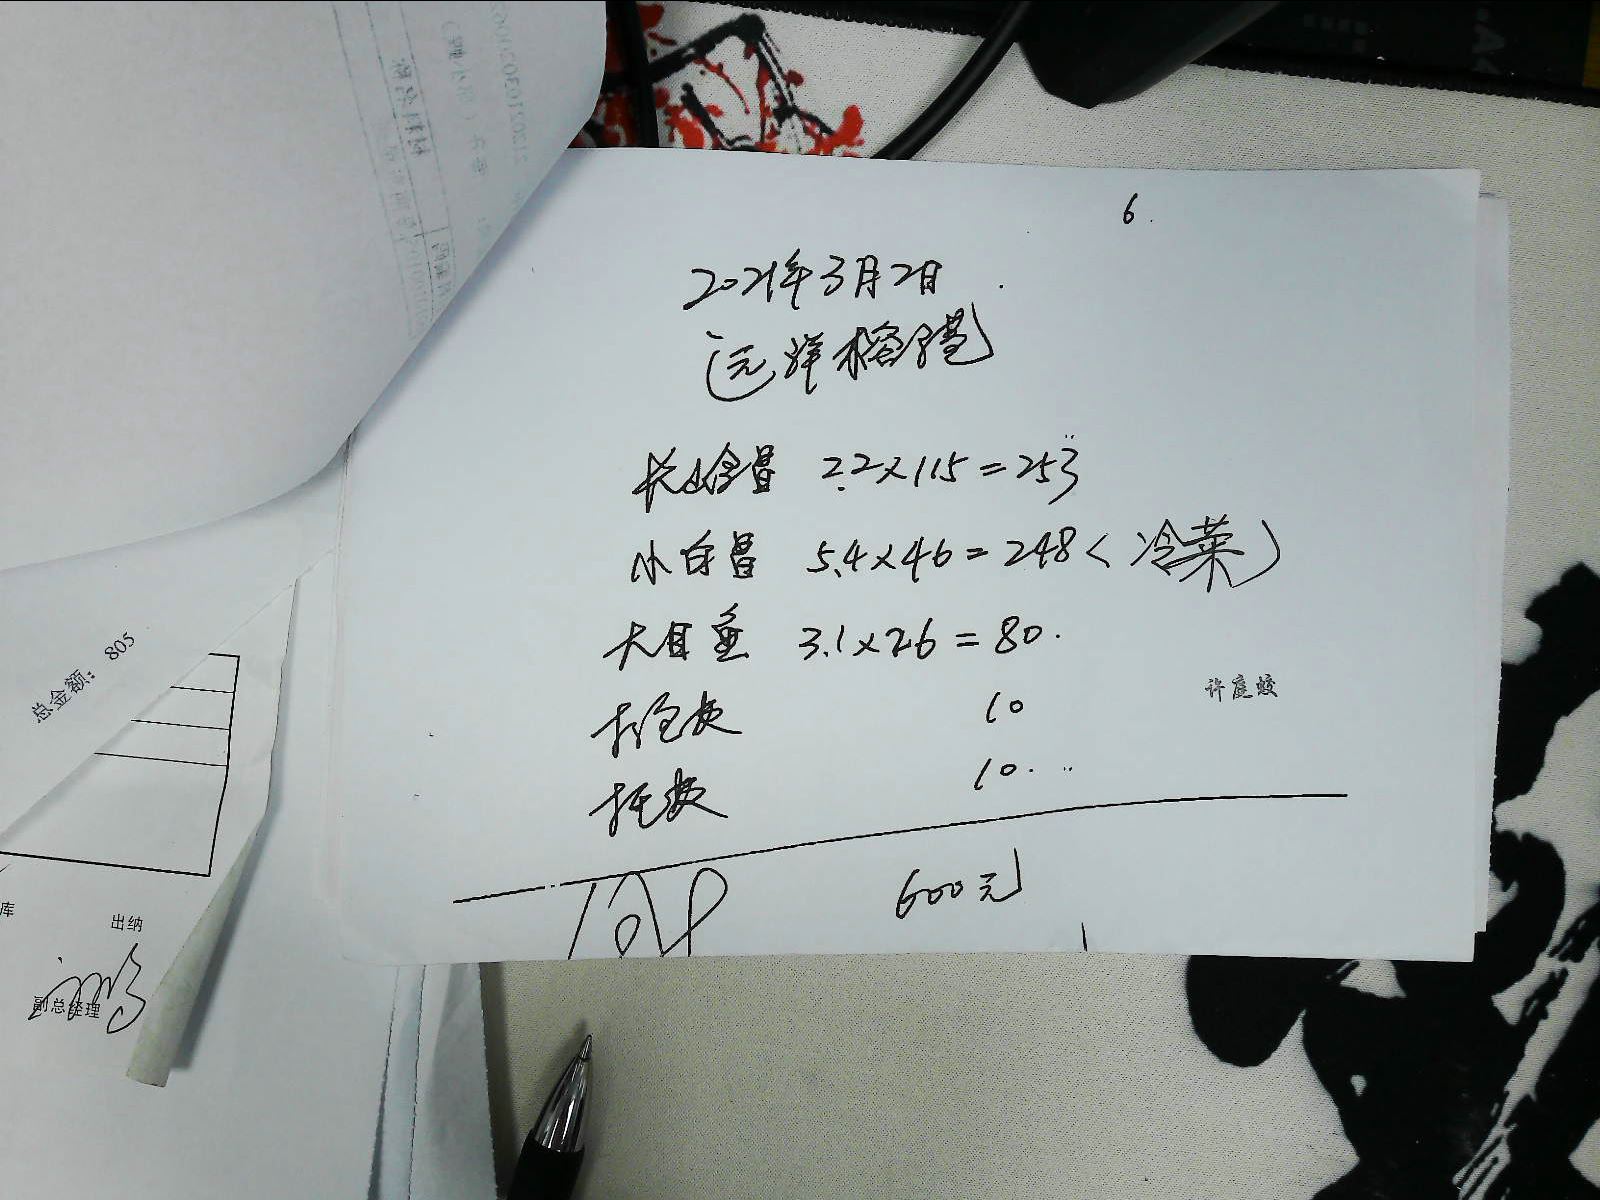 6.
2021年3月2日
远洋榕港
长山仓昌 2.2×115=253
小白昌 5.4×46=248(冷菜)
大目鱼 3.1×26=80.
许庭蛟
打包费 10
托费 10.
600元
总金额: 805
库
出纳
副总经理